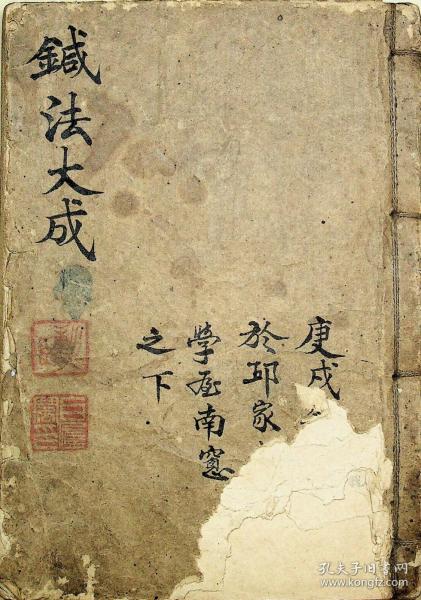 鍼法大成
庚戌
於邱家
學屋南窓
之下
孔夫子旧书网
www.kongfz.com